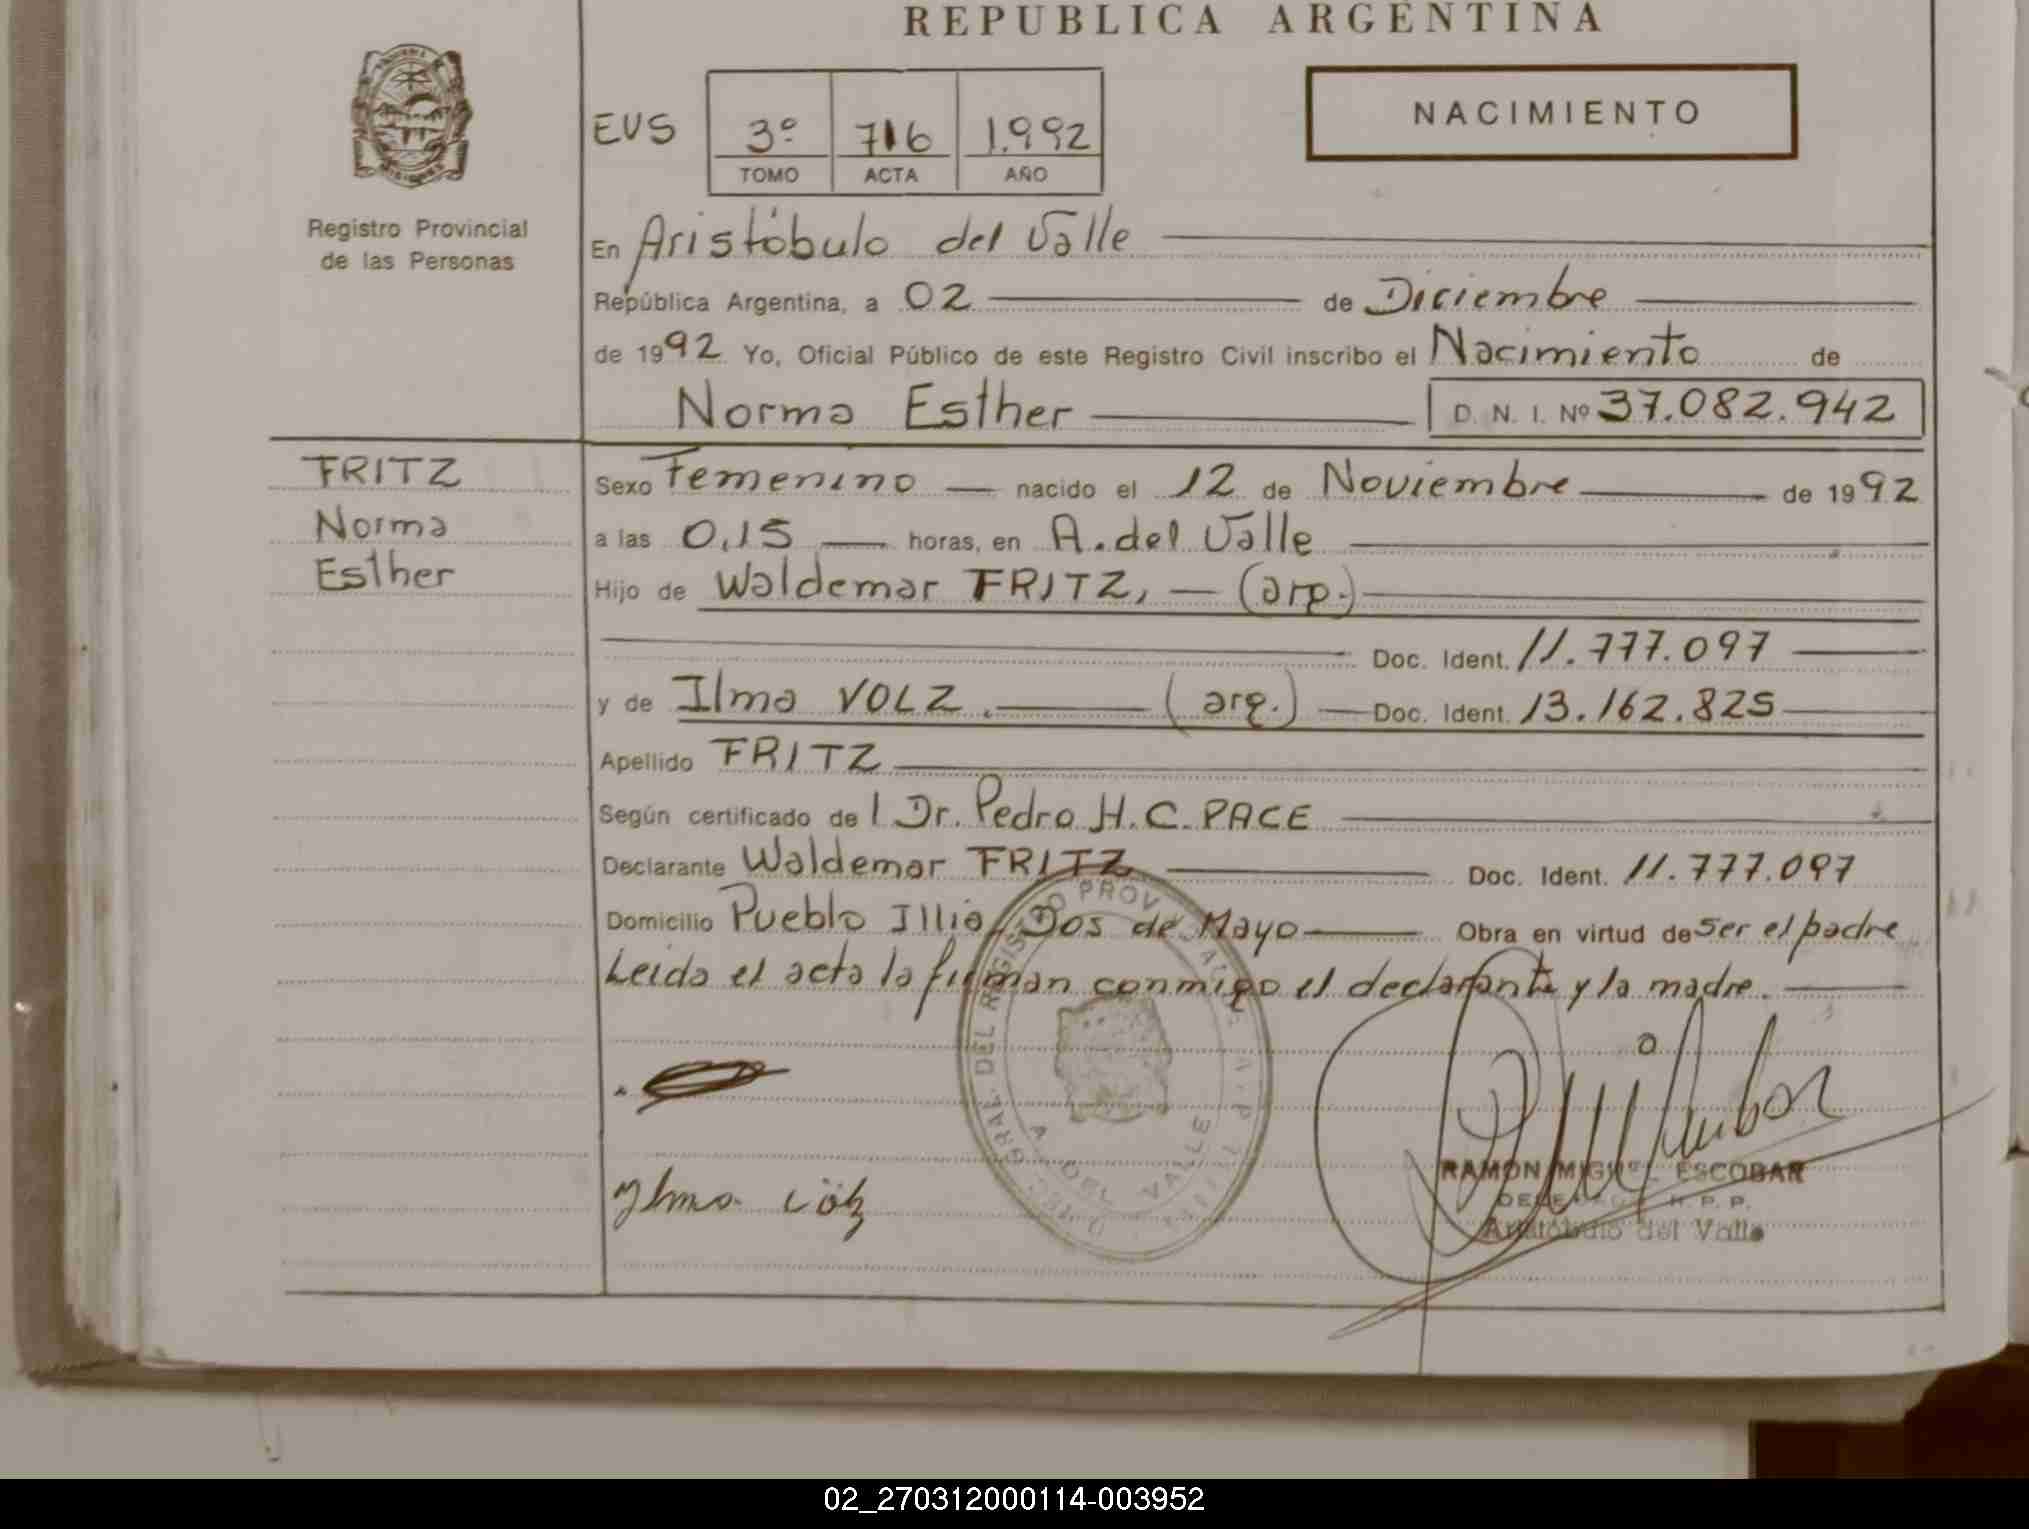 REPUBLICA ARGENTINA
NACIMIENTO
EVS 3º 716 1.992
TOMO ACTA AÑO
Registro Provincial
de las Personas
En Aristóbulo del Valle
República Argentina, a 02 de Diciembre
de 1992 Yo, Oficial Público de este Registro Civil inscribo el Nacimiento de
Norma Esther D. N. I. Nº 37.082.942
FRITZ
Norma
Esther
Sexo Femenino nacido el 12 de Noviembre de 1992
a las 0,15 horas, en A. del Valle
Hijo de Waldemar FRITZ, (arg.)
Doc. Ident. 11.777.097
y de Ilma VOLZ. (arg.) Doc. Ident. 13.162.825
Apellido FRITZ
Según certificado de l Dr. Pedro H. C. PACE
Declarante Waldemar FRITZ Doc. Ident. 11.777.097
Domicilio Pueblo Illia, Dos de Mayo Obra en virtud de ser el padre
Leida el acta la firman conmigo el declarante y la madre.
GRAL. DEL REGISTRO PROV
A DEL VALLE
Ylma
RAMON MIGUEL ESCOBAR
R. P. P.
Aristóbulo del Valle
02_270312000114-003952